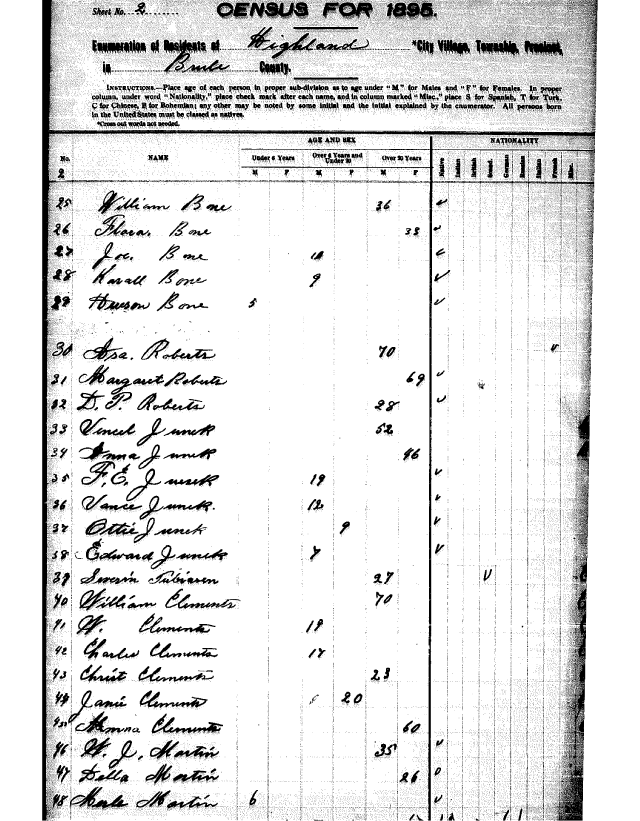 Sheet No. 2
CENSUS FOR 1895.
Enumeration of Residents of Highland *City Village, Township, Precinct,
in Brule County.
INSTRUCTIONS.—Place age of each person in proper sub-division as to age under "M" for Males and "F" for Females. In proper
column, under word "Nationality," place check mark after each name, and in column marked "Misc.," place S for Spanish, T for Turk,
C for Chinese, B for Bohemian; any other may be noted by some initial and the initial explained by the enumerator. All persons born
in the United States must be classed as natives.
*Cross out words not needed.
AGE AND SEX NATIONALITY
No. NAME Under 6 Years Over 6 Years and Under 20 Over 20 Years
2 M F M F M F
25 William Bone 36 ✓
26 Flora Bone 38 ✓
27 Joe. Bone ✓
28 Bone 9 ✓
29 Bone 5 ✓
30 Asa. Roberts 70 ✓
31 Margaret Roberts 69 ✓
32 D. P. Roberts 28 ✓
33 Vencel Junek 52
34 Anna Junek 46
35 F. E. Junek 19 ✓
36 Vance Junek. 12 ✓
37 Ottie Junek 9 ✓
38 Edward Junek 7 ✓
39 Severin 27 ✓
40 William Clements 70
41 W. Clements 19
42 Charles Clements 17
43 Christ Clements 23
44 Janie Clements 20
45 Clements 60
46 W. J. Martin 35 ✓
47 Della Martin 26 ✓
48 Merle Martin 6 ✓